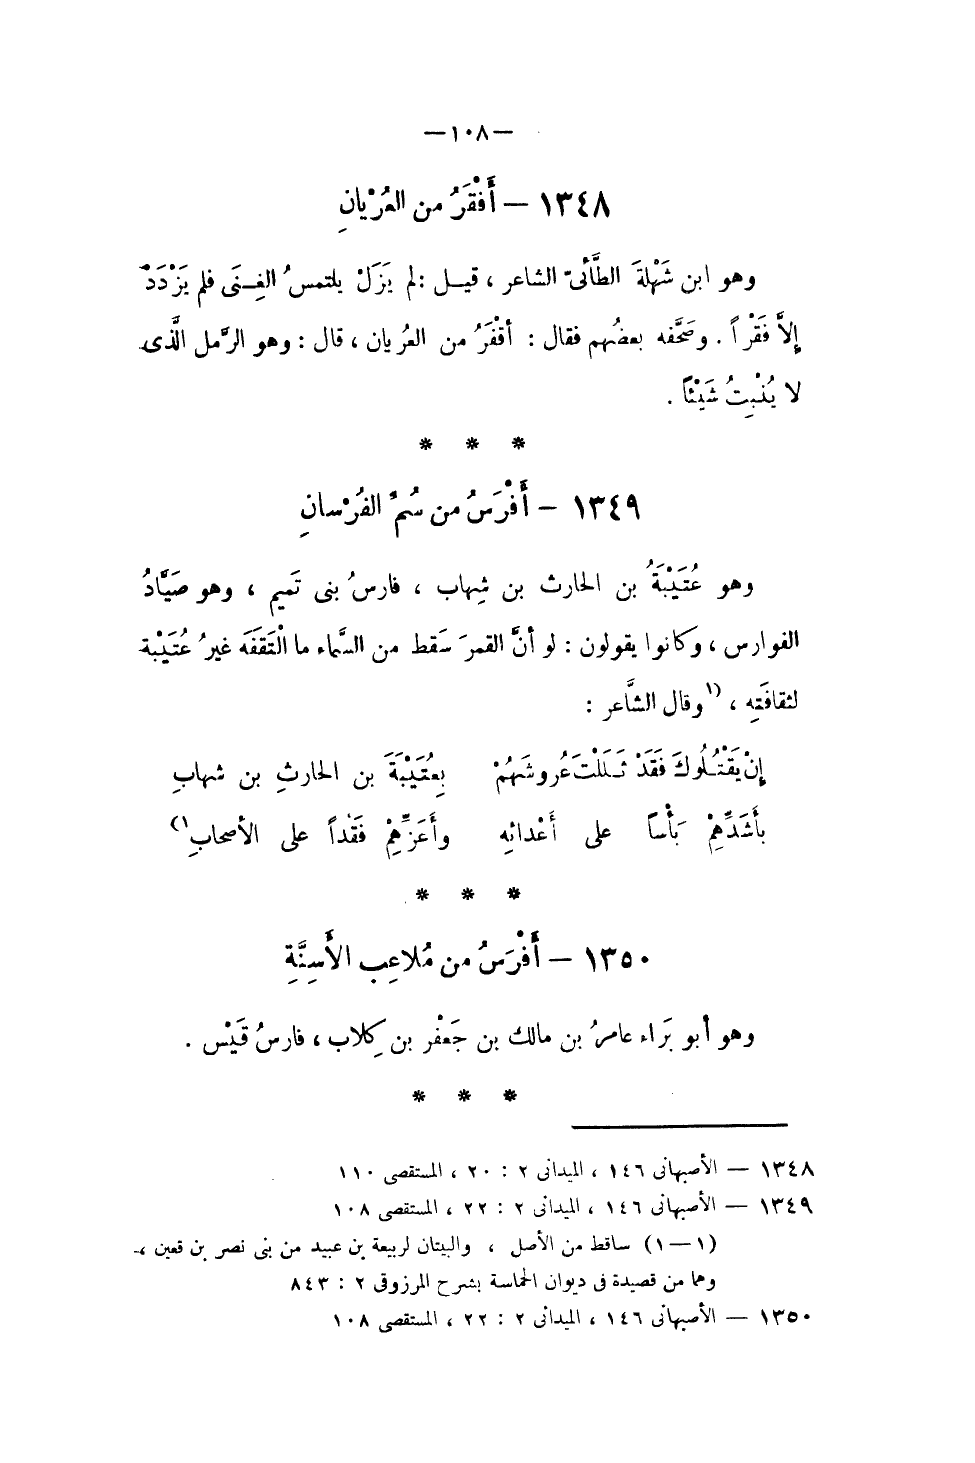 —١٠٨—
١٣٤٨ — أَفْقَرُ من العُرْيانِ
وهو ابن شَهْلَةَ الطَّائىّ الشاعر ، قيل : لم يَزَلْ يلتمسُ الغِنَى فلم يَزْدَدْ
إلاَّ فَقْراً . وصَحَّفه بعضُهم فقال : أقْفَرُ من العُريان ، قال : وهو الرَّمل الَّذى
لا يُنْبِتُ شَيْئاً .
* * *
١٣٤٩ — أَفْرَسُ من سُمِّ الفُرْسانِ
وهو عُتَيْبَةُ بن الحارث بن شِهاب ، فارسُ بنى تَميم ، وهو صَيَّادُ
الفوارس ، وكانوا يقولون : لو أنَّ القمرَ سَقط من السَّماء ما الْتَقَفَه غيرُ عُتَيْبة
لثقافَتِه ، (١وقال الشَّاعر :
إنْ يَقْتُلُوكَ فَقَدْ ثَلَلْتَ عُروشَهُمْ بِعُتَيْبَةَ بن الحارثِ بن شهابِ
بأَشَدِّهِمْ بَأْساً على أَعْدائِه وأَعَزِّهِمْ فَقْداً على الأصحابِ١)
* * *
١٣٥٠ — أَفْرَسُ من مُلاعِبِ الأَسِنَّةِ
وهو أبو بَراء عامرُ بن مالك بن جَعْفر بن كِلاب ، فارسُ قَيْس .
* * *
١٣٤٨ — الأصبهانى ١٤٦ ، الميدانى ٢ : ٢٠ ، المستقصى ١١٠
١٣٤٩ — الأصبهانى ١٤٦ ، الميدانى ٢ : ٢٢ ، المستقصى ١٠٨
(١—١) ساقط من الأصل ، والبيتان لربيعة بن عبيد من بنى نصر بن قعين ،
وهما من قصيدة فى ديوان الحماسة بشرح المرزوقى ٢ : ٨٤٣
١٣٥٠ — الأصبهانى ١٤٦ ، الميدانى ٢ : ٢٢ ، المستقصى ١٠٨